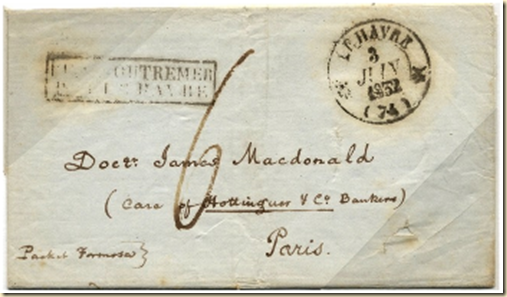 OUTREMER
HAVRE
LE HAVRE
3
JUIN
1852
(74)
6
Doctr. James Macdonald
(Care of Hottinguer & Co Bankers)
Paris.
Packet Formosa}